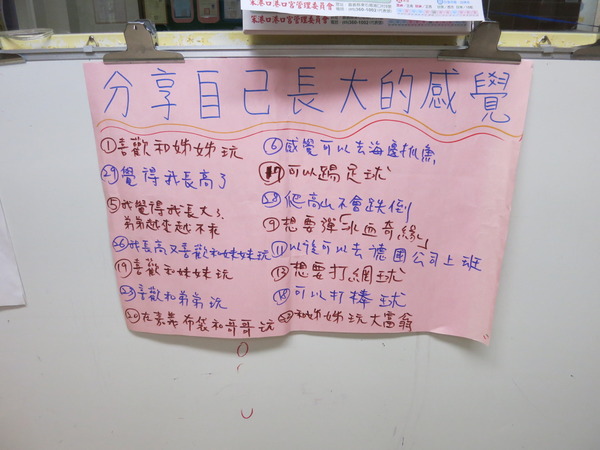 笨港口港口宮管理委員會
笨港口港口宮管理委員會
分享自己長大的感覺
①喜歡和姊姊玩
㉙覺得我長高了
⑤我覺得我長大了、
弟弟越來越不乖
㉖我長高又喜歡和妹妹玩
⑲喜歡和妹妹玩
㉓喜歡和弟弟玩
⑳在嘉義布袋和哥哥玩
⑥感覺可以去海邊抓魚
⑰可以踢足球
㉘爬高山不會跌倒
⑨想要彈「冰雪奇緣」
⑪以後可以去德國公司上班
⑬想要打網球
可以打棒球
和姊姊玩大富翁